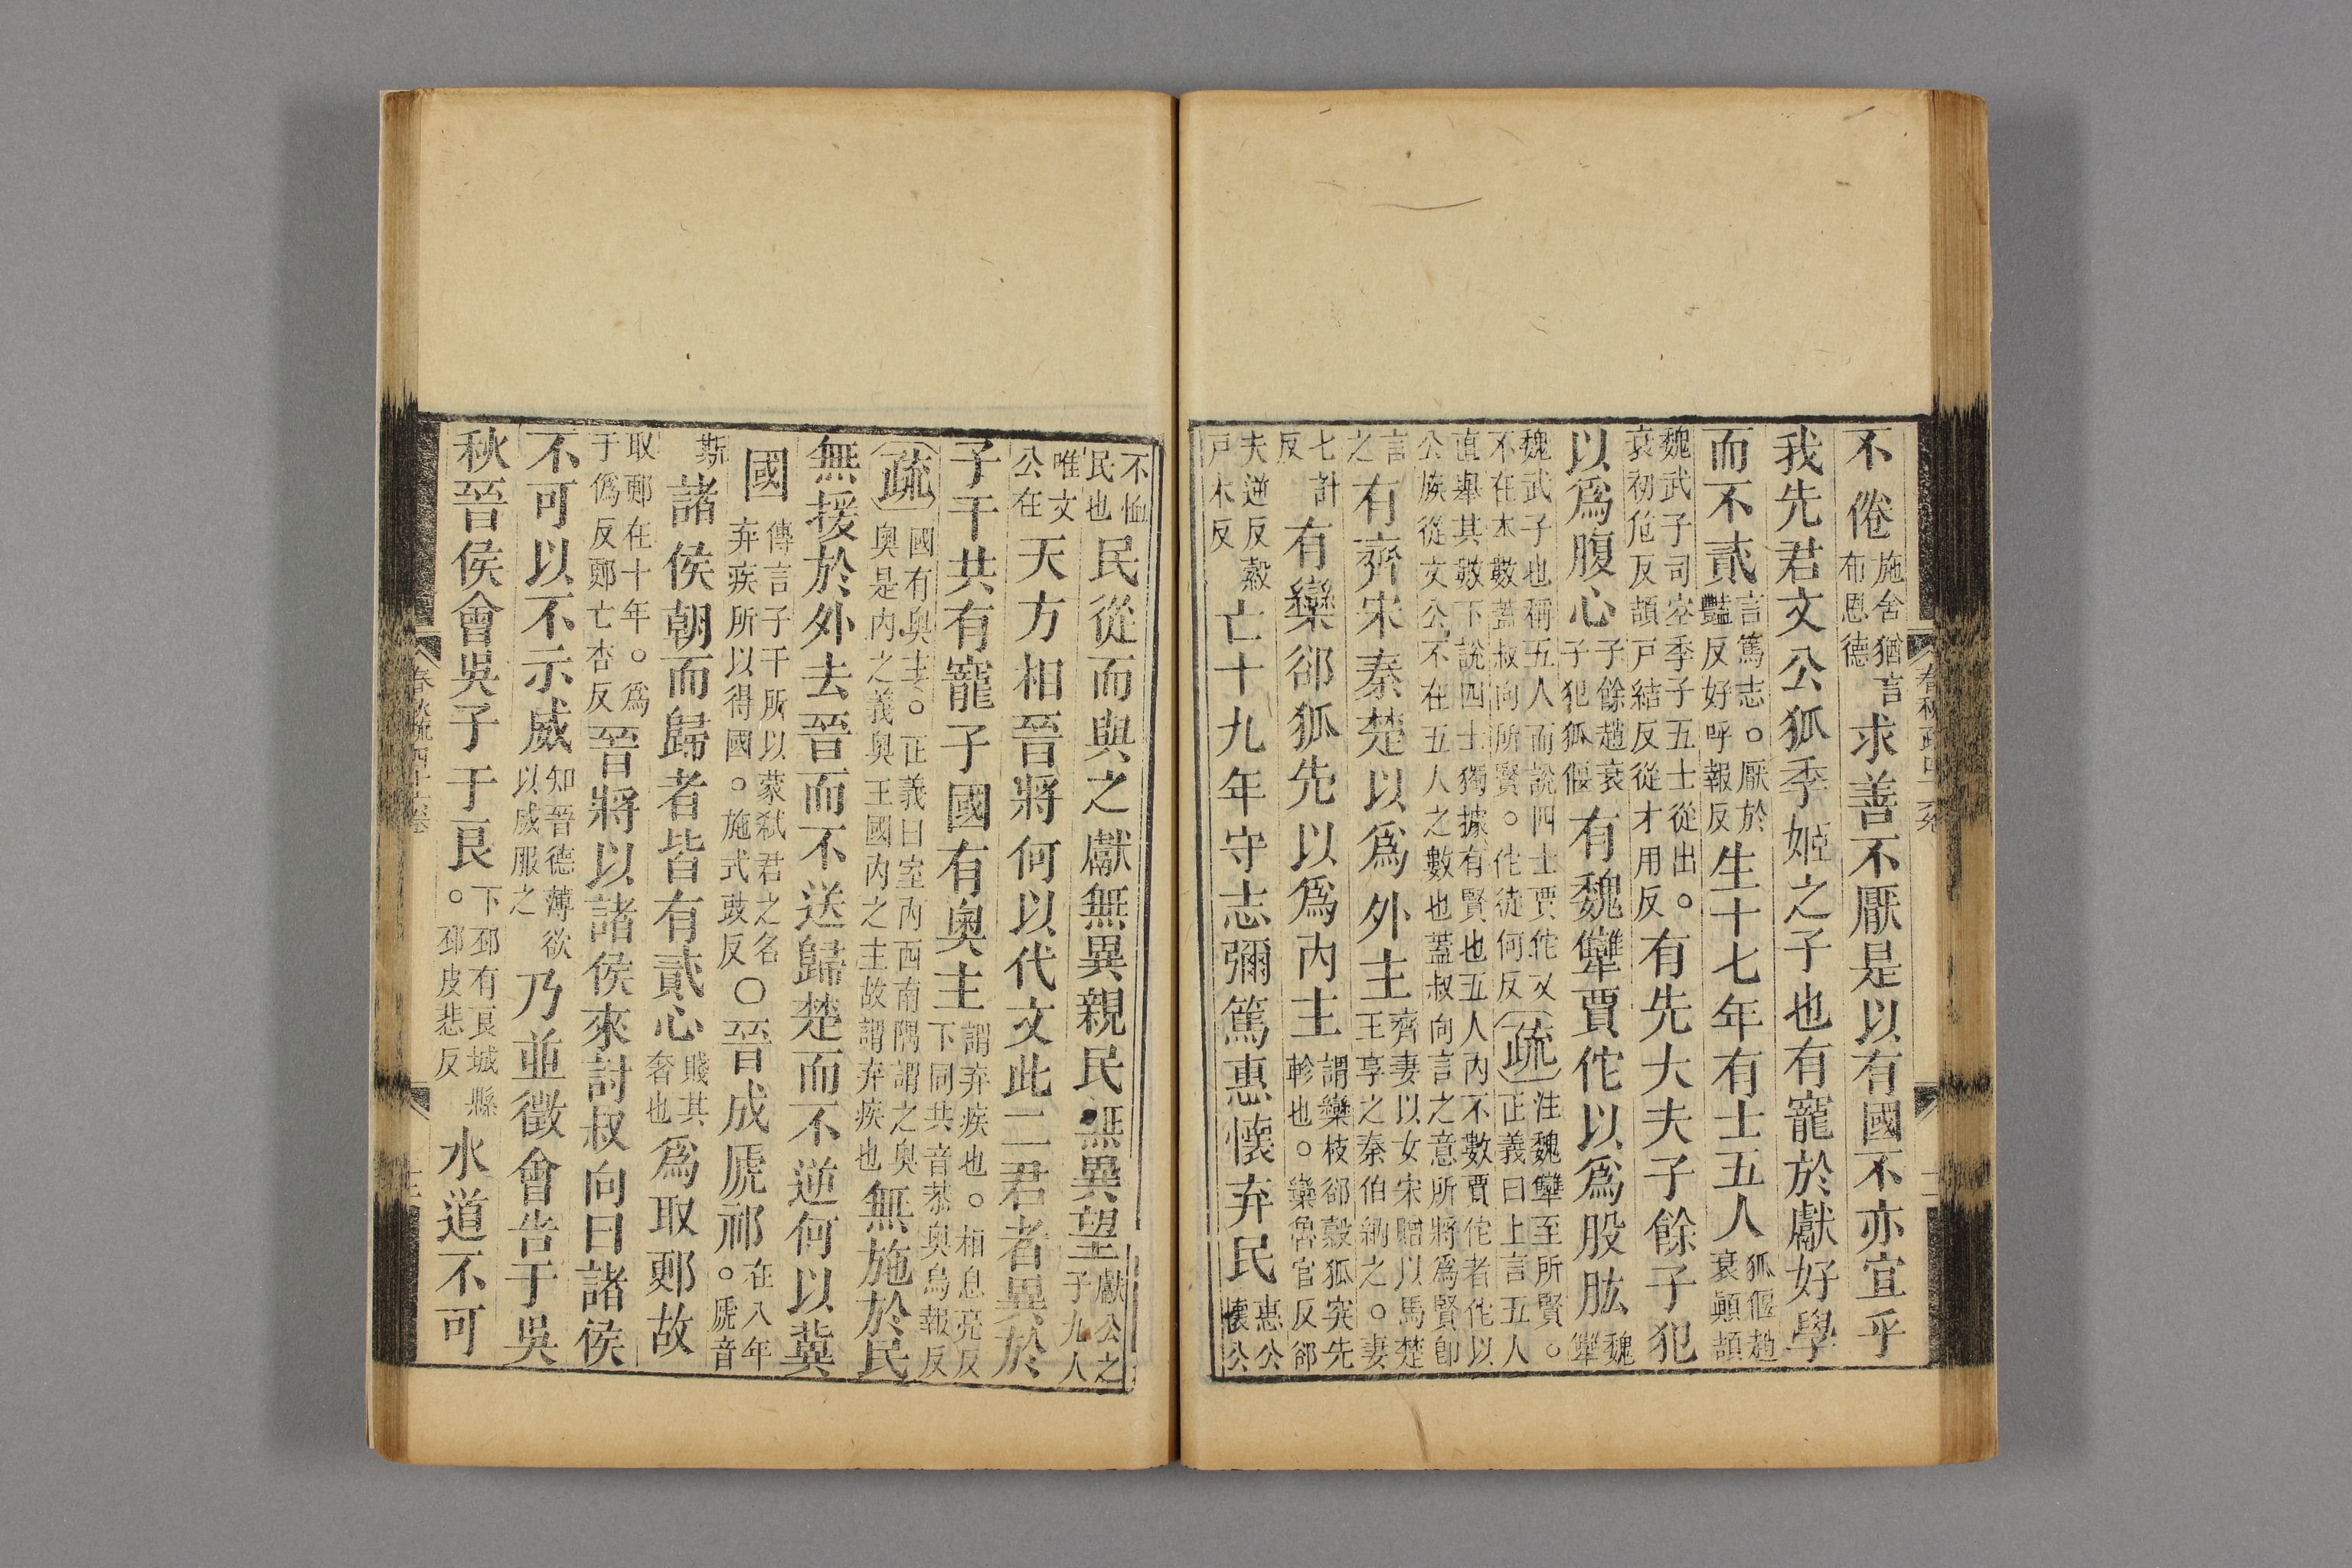 不倦施舍猶言布恩德求善不厭是以有國不亦宜乎
我先君文公狐季姬之子也有寵於獻好學
而不貳言篤志○厭於豔反好呼報反生十七年有士五人狐偃趙衰顛頡
魏武子司空季子五士從出○衰初危反頡戶結反從才用反有先大夫子餘子犯
以爲腹心子餘趙衰子犯狐偃有魏犨賈佗以爲股肱魏犨
魏武子也稱五人而說四士賈佗又不在本數蓋叔向所賢○佗徒何反疏注魏犨至所賢○正義曰上言五人
直舉其數下說四士獨據有賢也五人內不數賈佗者佗以公族從文公不在五人之數也蓋叔向言之意所將爲賢卽
言之有齊宋秦楚以爲外主齊妻以女宋贈以馬楚王享之秦伯納之○妻
七計反有欒郤狐先以爲內主謂欒枝郤縠狐突先軫也○欒魯官反郤
去逆反縠戶木反亡十九年守志彌篤惠懷弃民惠公懷公
不恤民也民從而與之獻無異親民無異望獻公之子九人
唯文公在天方相晉將何以代文此二君者異於
子干共有寵子國有奧主謂弃疾也○相息亮反下同共音恭奧烏報反
疏國有奧主○正義曰室內西南隅謂之奧奧是內之義奧王國內之主故謂弃疾也無施於民
無援於外去晉而不送歸楚而不逆何以冀
國傳言子干所以蒙弒君之名弃疾所以得國○施式豉反○晉成虒祁在八年○虒音
斯諸侯朝而歸者皆有貳心賤其奢也爲取郠故
取郠在十年○爲于僞反郠亡杏反晉將以諸侯來討叔向曰諸侯
不可以不示威知晉德薄欲以威服之乃並徵會告于吳
秋晉侯會吳子于良下邳有良城縣○邳皮悲反水道不可